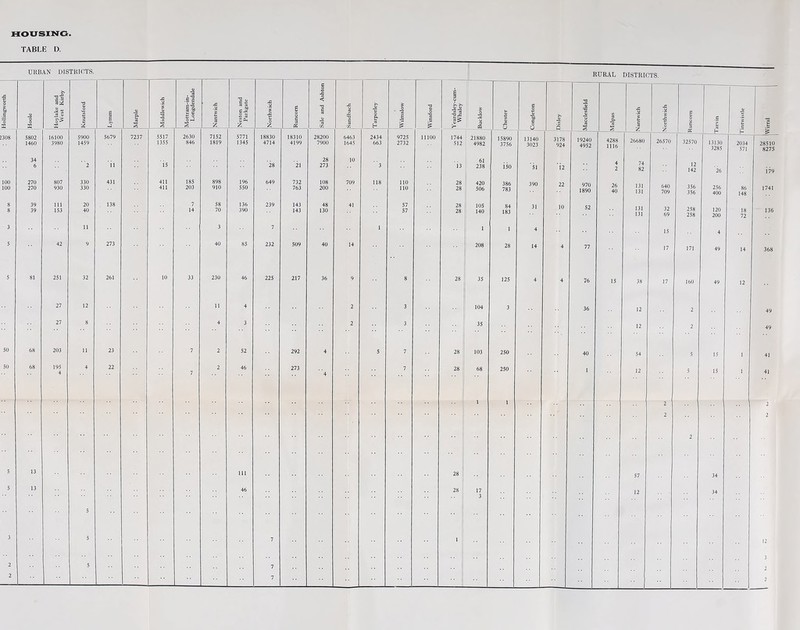 HOUSING.
TABLE D.
URBAN DISTRICTS.
RURAL DISTRICTS.
Hollingworth Hoole Hoylake and West Kirby Knutsford Lymm Marple Middlewich Mottram-in-Longdendale Nantwich Neston and Parkgate Northwich Runcorn Sale and Ashton Sandbach Tarporley Wilmslow Winsford Yeardsley-cum-Whaley Bucklow Chester Congleton Disley Macclesfield Malpas Nantwich Northwich Runcorn Tarvin Tintwistle Wirral
2308 5802 16100 5900 5679 7237 5517 2630 7152 5771 18830 18310 28200 6463 2434 9725 11100 1744 21880 15890 13140 3178 19240 4288 26680 26570 32570 13130 2034 28510
1460 3980 1459 1355 846 1819 1345 4714 4199 7900 1645 663 2732 512 4982 3756 3023 924 4952 1116 3285 571 8275
34 28 10 61 4 74 12
6 2 11 15 28 21 273 3 13 238 150 51 12 2 82 142 26 179
100 270 807 330 411 411 185 898 196 649 732 108 709 118 110 28 420 386 390 22 970 26 131 640 356 256 86 1741
100 270 930 330 411 203 910 550 763 200 110 28 506 783 1890 40 131 709 356 400 148
8 39 111 20 138 7 58 136 239 143 48 41 57 28 105 84 31 10 52 131 32 258 120 18 136
8 39 153 40 14 70 390 143 130 57 28 140 183 131 69 258 200 72
3 11 3 7 1 1 1 4 15 4
5 42 9 273 40 85 232 509 40 14 208 28 14 4 77 17 171 49 14 368
5 81 251 32 261 10 33 230 46 225 217 36 9 8 28 35 125 4 4 26 15 38 17 160 49 12
27 12 11 4 2 3 104 3 36 12 2 49
27 8 4 3 2 3 35 12 2 49
50 68 203 11 23 7 2 52 292 4 5 7 28 103 250 40 34 5 15 1 41
50 68 195 4 22 2 46 273 7 28 68 250 1 12 5 15 1 41
4 7 4
1 1 2 2
2 2
2
5 13 111 28 57 34
5 13 46 28 17 12 34
3
5
3 5 7 1 12
3
2 5 7 2
2 7 2